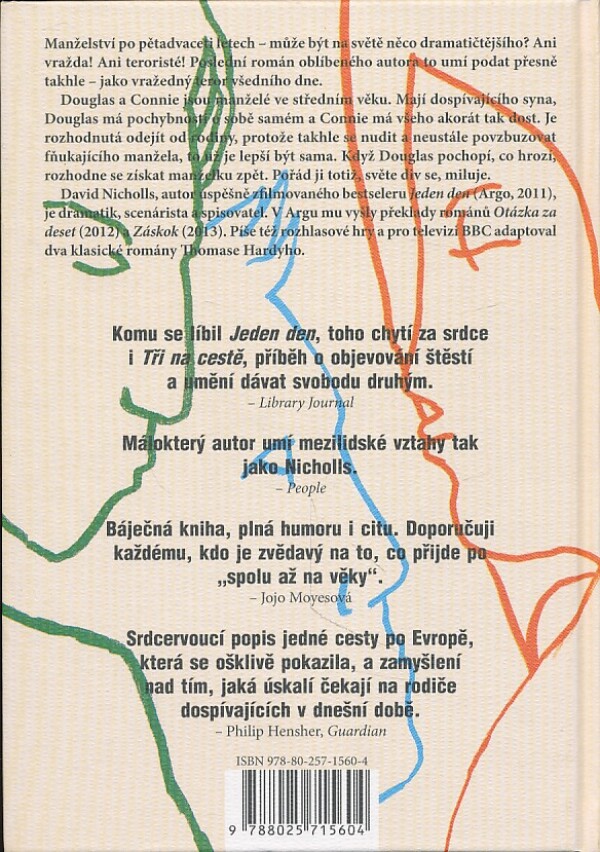 Manželství po pětadvaceti letech – může být na světě něco dramatičtějšího? Ani
vražda! Ani teroristé! Poslední román oblíbeného autora to umí podat přesně
takhle – jako vražedný teror všedního dne.
Douglas a Connie jsou manželé ve středním věku. Mají dospívajícího syna,
Douglas má pochybnosti o sobě samém a Connie má všeho akorát tak dost. Je
rozhodnutá odejít od rodiny, protože takhle se nudit a neustále povzbuzovat
fňukajícího manžela, to už je lepší být sama. Když Douglas pochopí, co hrozí,
rozhodne se získat manželku zpět. Pořád ji totiž, světe div se, miluje.
David Nicholls, autor úspěšně zfilmovaného bestselleru Jeden den (Argo, 2011),
je dramatik, scenárista a spisovatel. V Argu mu vyšly překlady románů Otázka za
deset (2012) a Záskok (2013). Píše též rozhlasové hry a pro televizi BBC adaptoval
dva klasické romány Thomase Hardyho.
Komu se líbil Jeden den, toho chytí za srdce
i Tři na cestě, příběh o objevování štěstí
a umění dávat svobodu druhým.
– Library Journal
Málokterý autor umí mezilidské vztahy tak
jako Nicholls.
– People
Báječná kniha, plná humoru i citu. Doporučuji
každému, kdo je zvědavý na to, co přijde po
„spolu až na věky“.
– Jojo Moyesová
Srdcervoucí popis jedné cesty po Evropě,
která se ošklivě pokazila, a zamyšlení
nad tím, jaká úskalí čekají na rodiče
dospívajících v dnešní době.
– Philip Hensher, Guardian
ISBN 978-80-257-1560-4
9 788025 715604